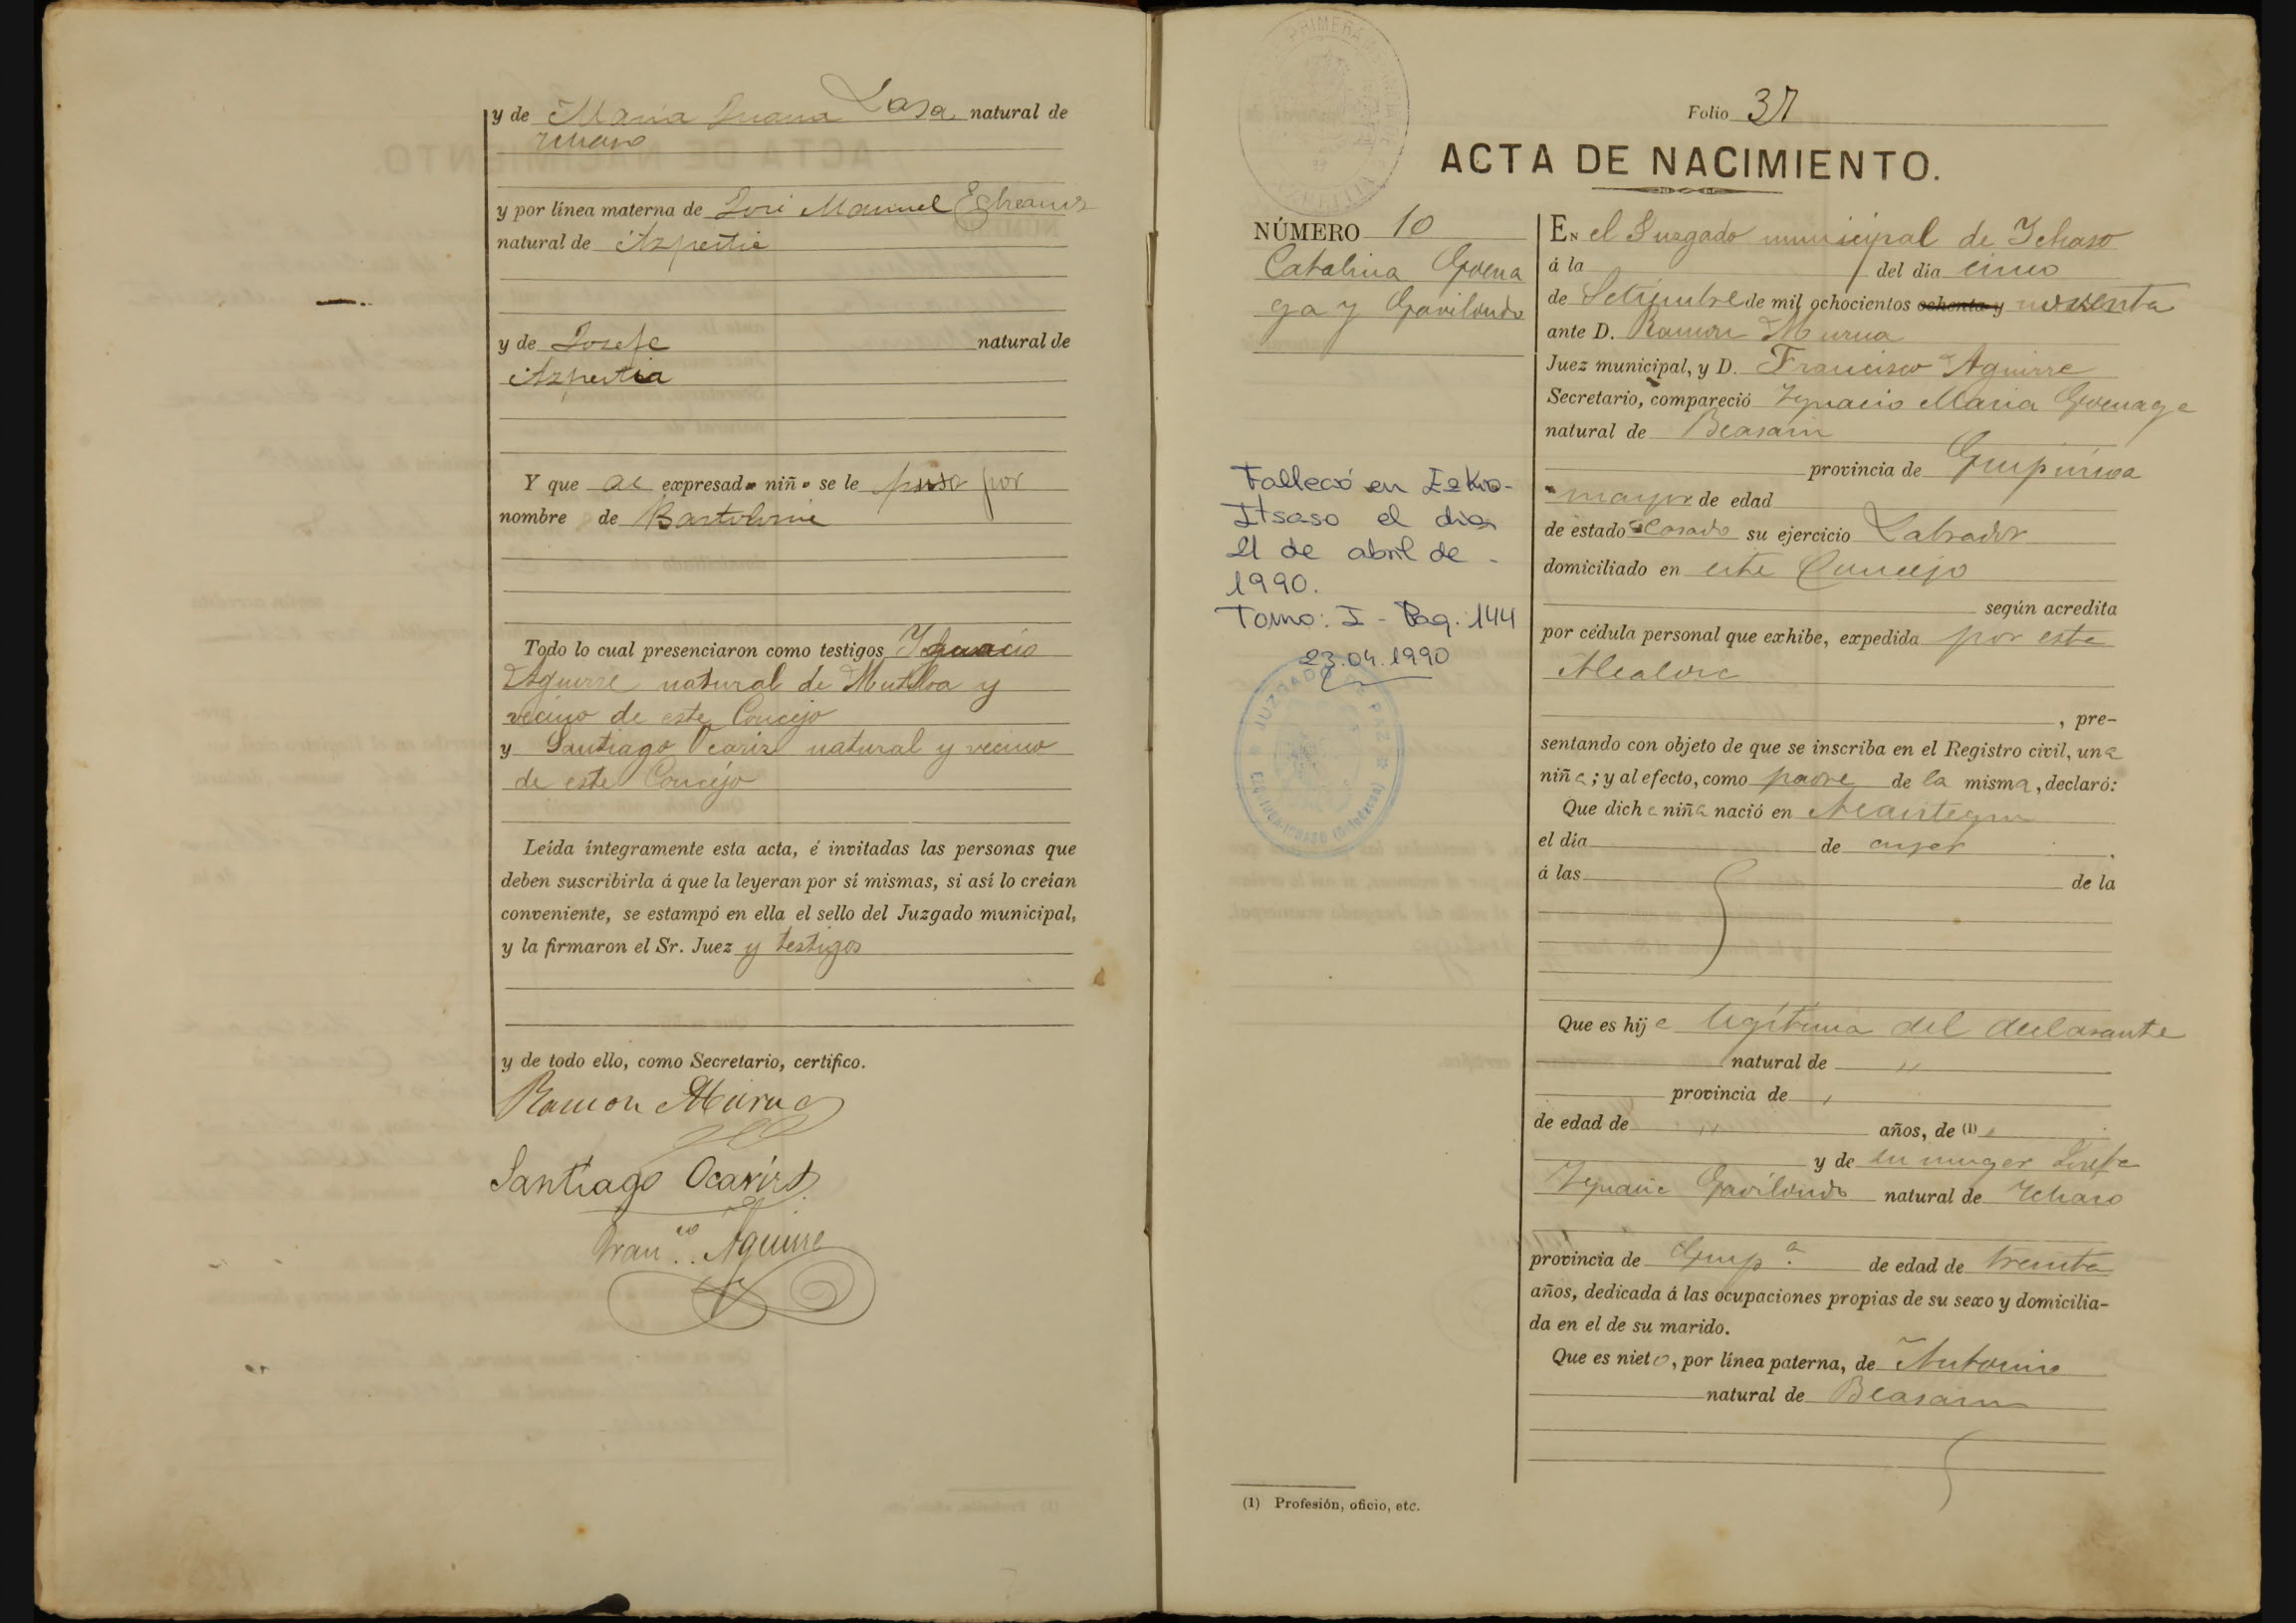 y de María Juana Lasa natural de
Ichaso
y por línea materna de José Manuel Echeaniz
natural de Azpeitia
y de Josefa natural de
Azpeitia
Y que al expresado niño se le puso por
nombre de Bartolomé
Todo lo cual presenciaron como testigos Ignacio
Aguirre natural de Mutiloa y
vecino de este Concejo
y Santiago Ocariz natural y vecino
de este Concejo
Leída íntegramente esta acta, é invitadas las personas que
deben suscribirla á que la leyeran por sí mismas, si así lo creían
conveniente, se estampó en ella el sello del Juzgado municipal,
y la firmaron el Sr. Juez y testigos
y de todo ello, como Secretario, certifico.
Ramon Murua
Santiago Ocariz
Fran.co Aguirre
Folio 37
ACTA DE NACIMIENTO.
NÚMERO 10
Catalina Goena
ga y Gavilondo
Falleció en Ezkio-
Itsaso el día
21 de abril de
1990.
Tomo: I - Pag.: 144
23.04.1990
JUZGADO DE PAZ
EN el Juzgado municipal de Ichaso
á la del dia cinco
de Setiembre de mil ochocientos ochenta y noventa
ante D. Ramon Murua
Juez municipal, y D. Francisco Aguirre
Secretario, compareció Ygnacio Maria Goenaga
natural de Beasain
provincia de Guipuzcoa
mayor de edad
de estado Casado su ejercicio Labrador
domiciliado en este Concejo
según acredita
por cédula personal que exhibe, expedida por este
Alcalde
, pre-
sentando con objeto de que se inscriba en el Registro civil, una
niña; y al efecto, como padre de la misma, declaró:
Que dicha niña nació en
el día de ayer
á las de la
Que es hija legítima del declarante
natural de "
provincia de "
de edad de " años, de (1)
y de su muger Josefa
Ygnacia Gavilondo natural de Ichaso
provincia de Guip.a de edad de treinta
años, dedicada á las ocupaciones propias de su sexo y domicilia-
da en el de su marido.
Que es nieto, por línea paterna, de Antonio
natural de Beasain
(1) Profesión, oficio, etc.